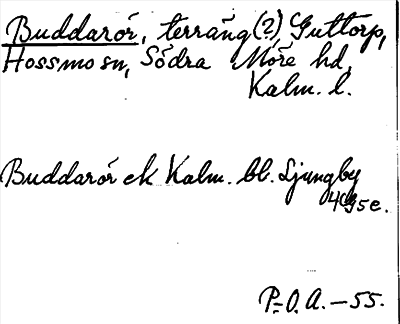 Buddarör, terräng (?) Guttorp,
Hossmo sn, Södra Möre hd,
Kalm. l.
Buddarör ek Kalm. bl. Ljungby
4G5e.
P.-O.A. - 55.